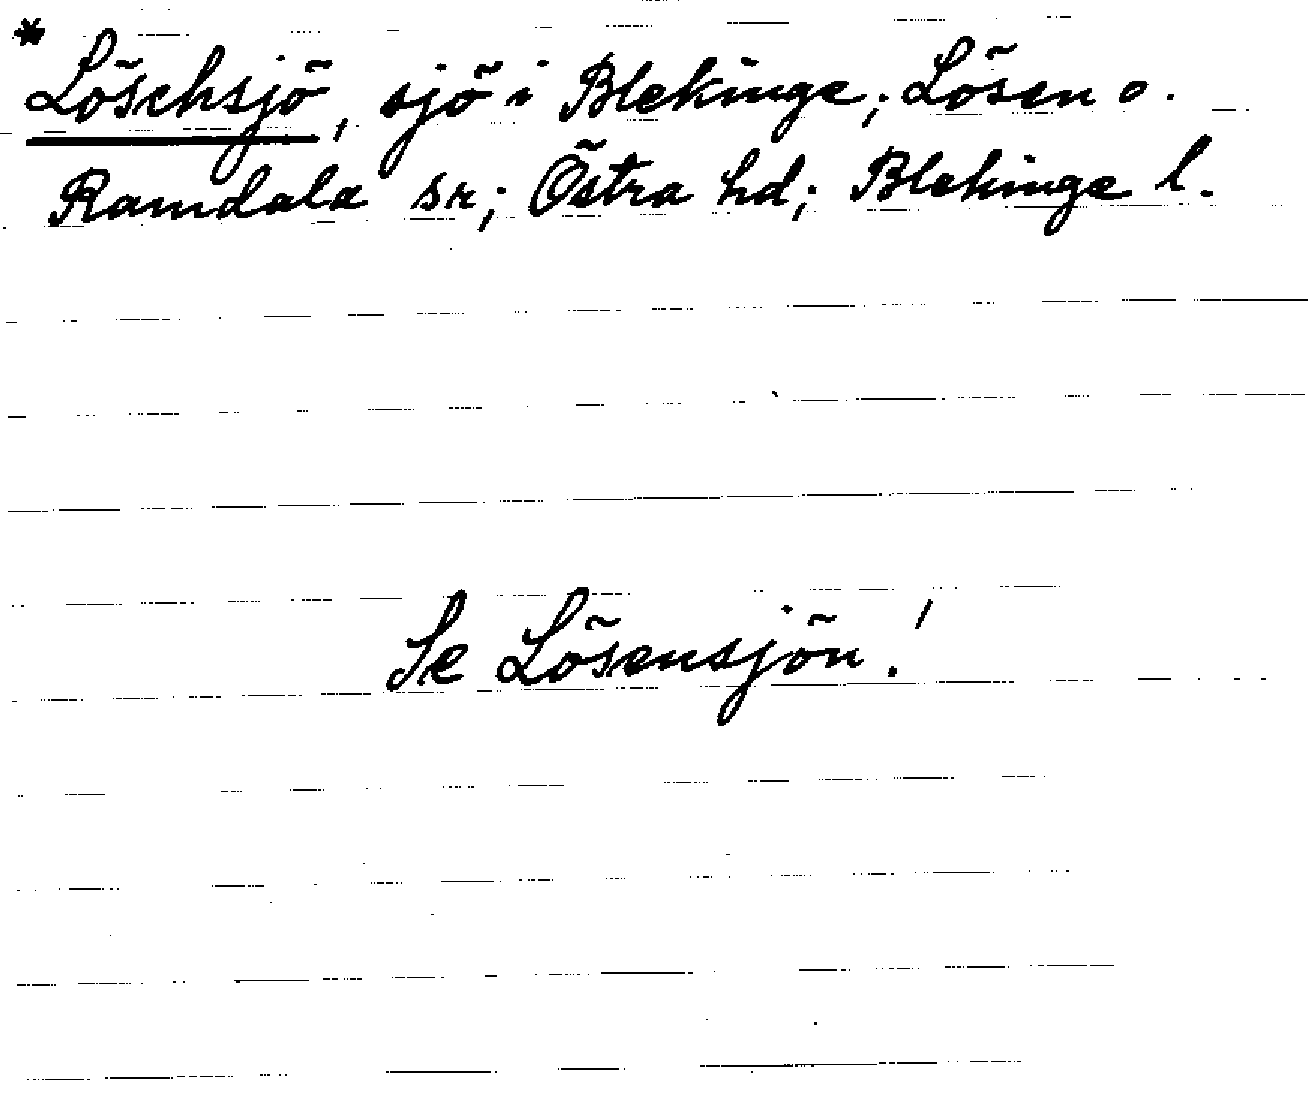 * Löschsjö, sjö i Blekinge; Lösen o.
Ramdala sn; Östra hd; Blekinge l.
Se Lösensjön!